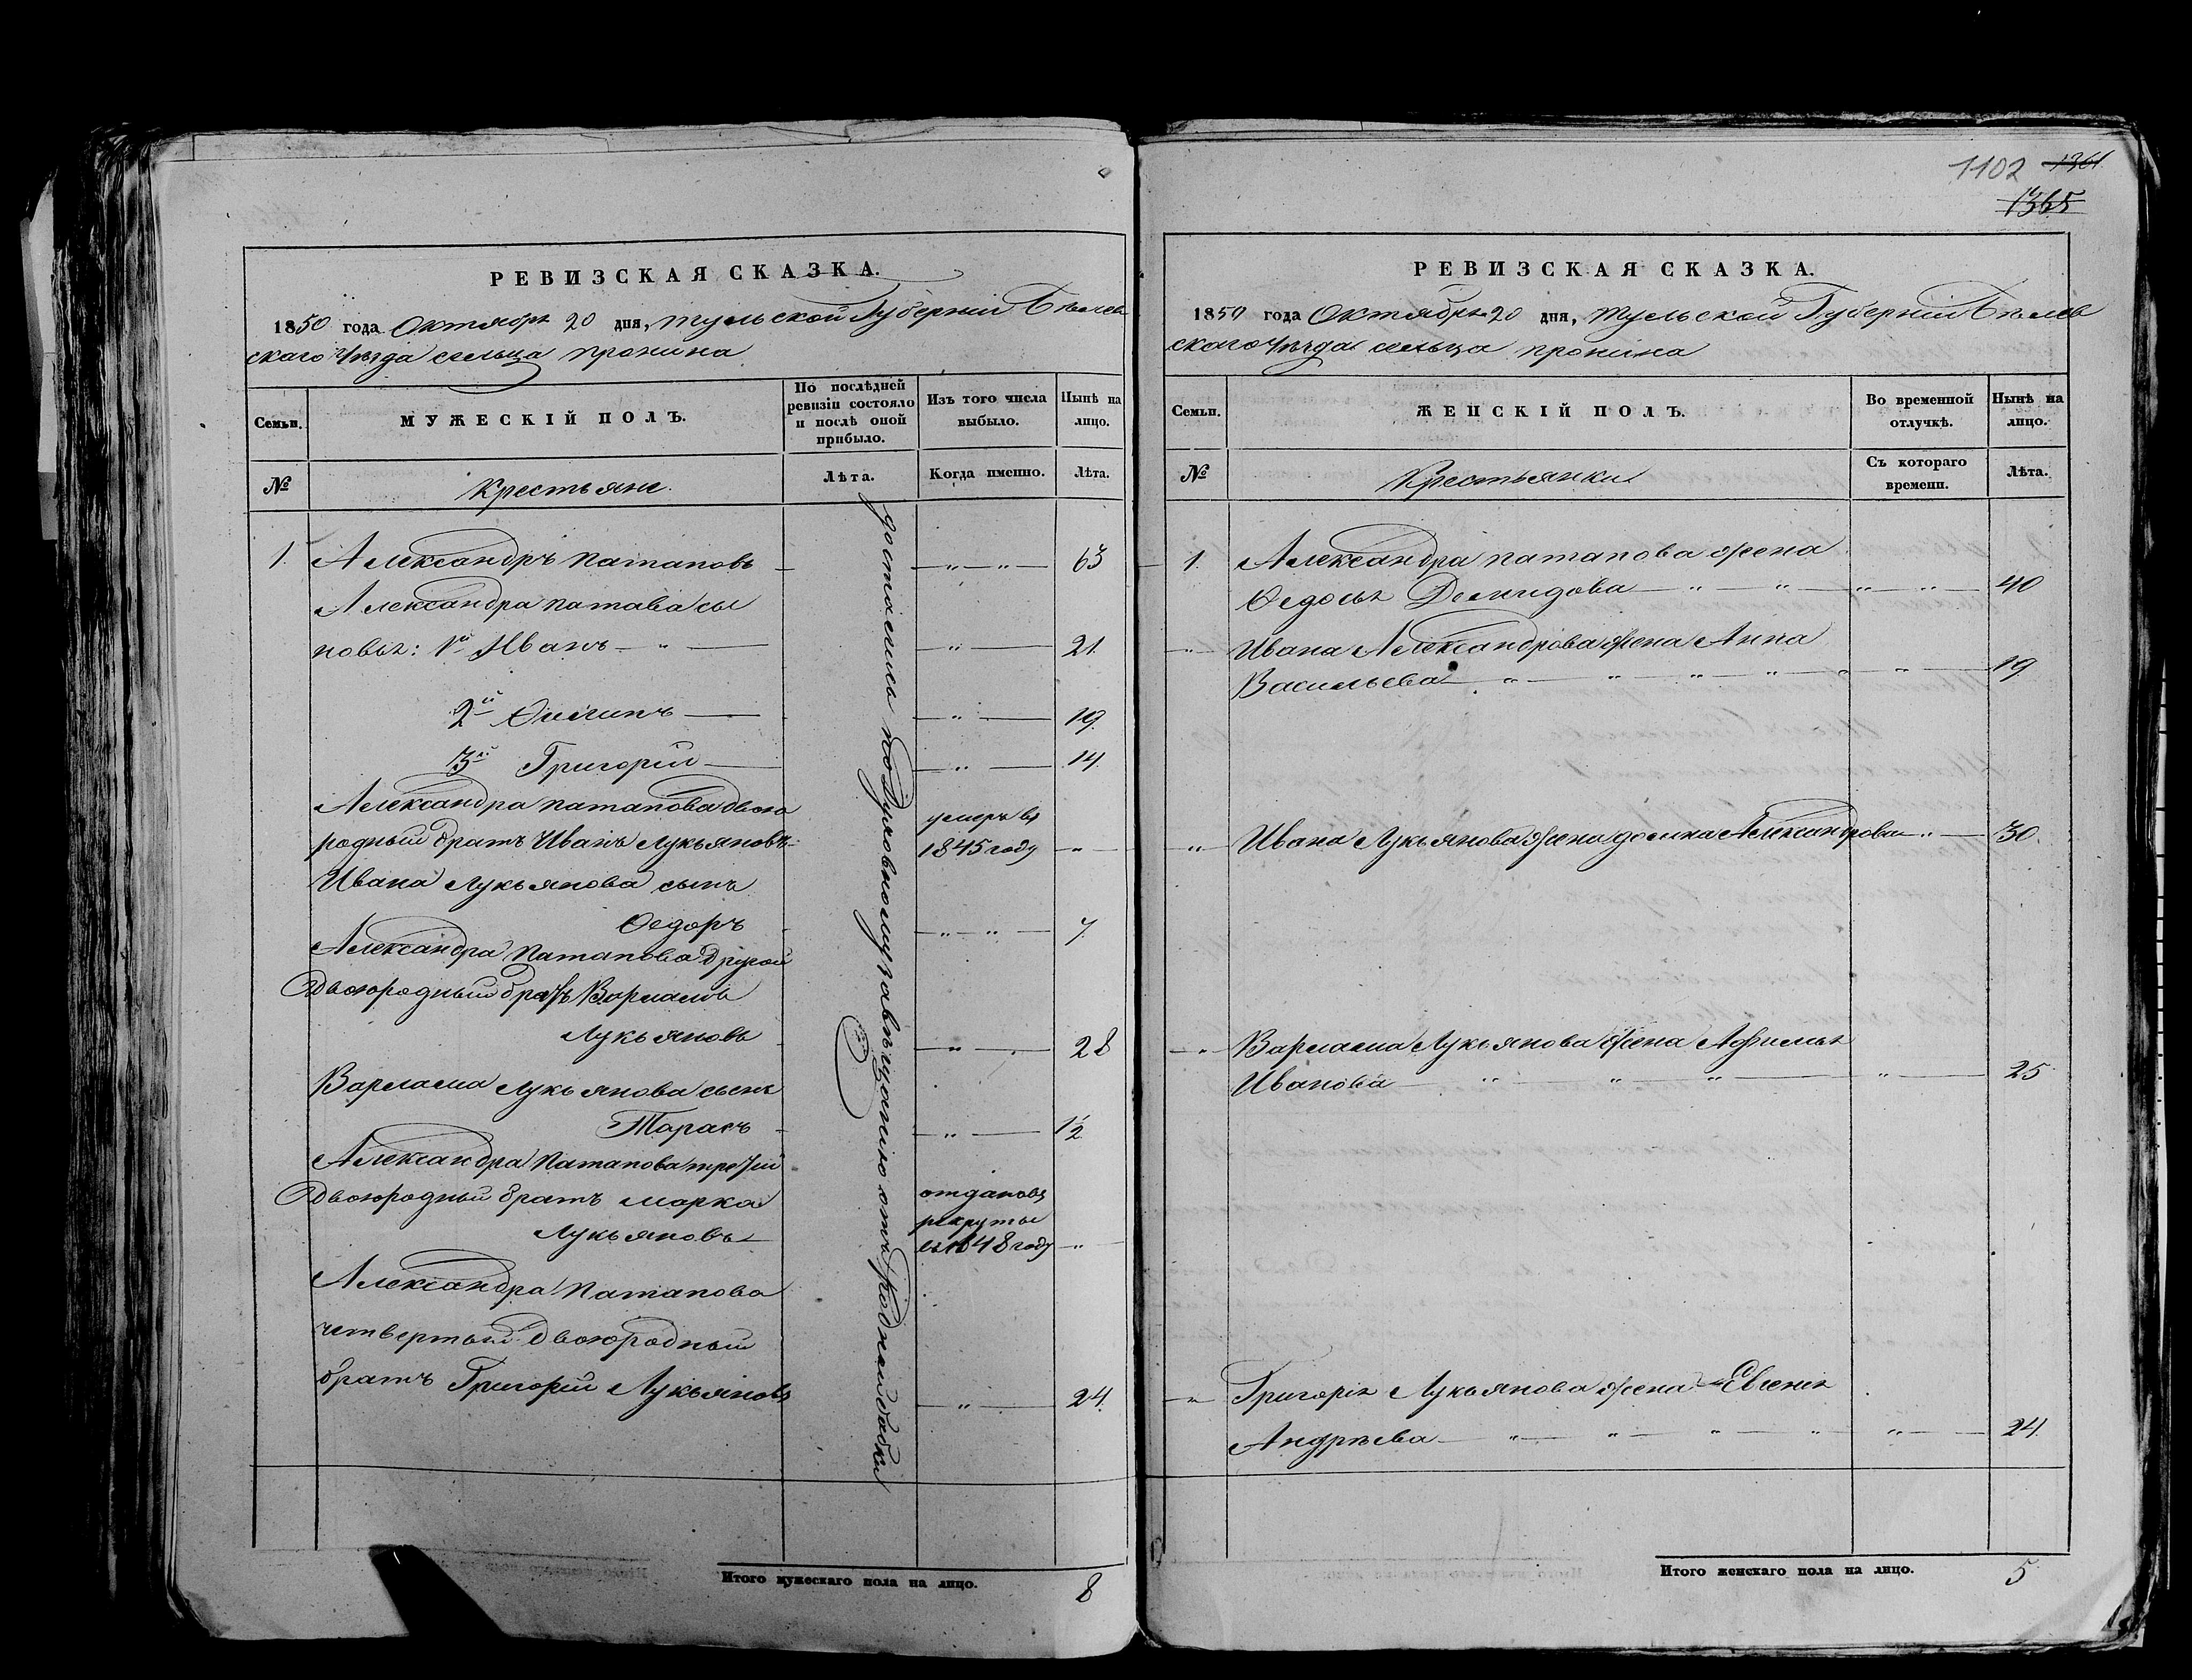 РЕВИЗСКАЯ СКАЗКА.
1850 года Октября 20 дня, Тульской Губерніи Бѣлев
скаго Уѣзда сельца Пронина
Семьи.
МУЖЕСКІЙ ПОЛЪ.
По послѣдней ревизіи состояло и послѣ оной прибыло.
Изъ того числа выбыло.
Нынѣ на лицо.
№
Крестьяне.
Лѣта.
Когда именно.
Лѣта.
1. Александръ Патаповъ — " — " — 63
Александра Патапова сы
новья: 1й Иванъ — " — " — 21.
2й Филипъ — " — 19.
3й Григорій — " — 14.
Александра Патапова двою
родный братъ Иванъ Лукьяновъ умеръ въ 1845 году — " —
Ивана Лукьянова сынъ
Федоръ — " — " — 7.
Александра Патапова другой
Двоюродный братъ Варламъ
Лукьяновъ — " — 28
Варлама Лукьянова сынъ
Тарасъ — " — 1½
Александра Патапова третій
Двоюродный братъ Марка отданъ въ
Лукьяновъ рекруты въ 1848 году — " —
Александра Патапова
четвертый двоюродный
братъ Григорій Лукьяновъ — " — 24.
достались по Духовному завѣщанію отъ родной бабки
Итого мужескаго пола на лицо. 8
1102 1361
1365
РЕВИЗСКАЯ СКАЗКА.
1850 года Октября 20 дня, Тульской Губерніи Бѣлев
скаго Уѣзда сельца Пронина
Семьи.
ЖЕНСКІЙ ПОЛЪ.
Во временной отлучкѣ.
Нынѣ на лицо.
№
Крестьянки
Съ котораго времени.
Лѣта.
1. Александра Патапова жена
Федосья Демидова — " — " — " — " — 40
" Ивана Александрова жена Анна
Васильева — " — " — " — " — " — 19
" Ивана Лукьянова жена Домна Александрова — " — 30.
" Варлама Лукьянова жена Афимья
Иванова — " — " — " — " — 25
" Григорья Лукьянова жена Евгенія
Андрѣева — " — " — " — " — " — 24.
Итого женскаго пола на лицо. 5